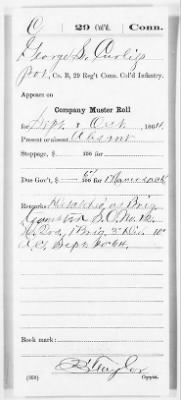 C 29 Col. Conn.
George S. Curtis
Pvt., Co. B, 29 Reg't Conn. Col'd Infantry.
Appears on
Company Muster Roll
for Sept & Oct, 1864.
Present or absent Absent
Stoppage, $ 100 for
Due Gov't, $ 100 for
Remarks: Detached as Brig
S.O. No. 12
Hd Qrs. 1 Brig 3 Div 10
A.C. Sept. 64.
Book mark:
(358) Copyist.